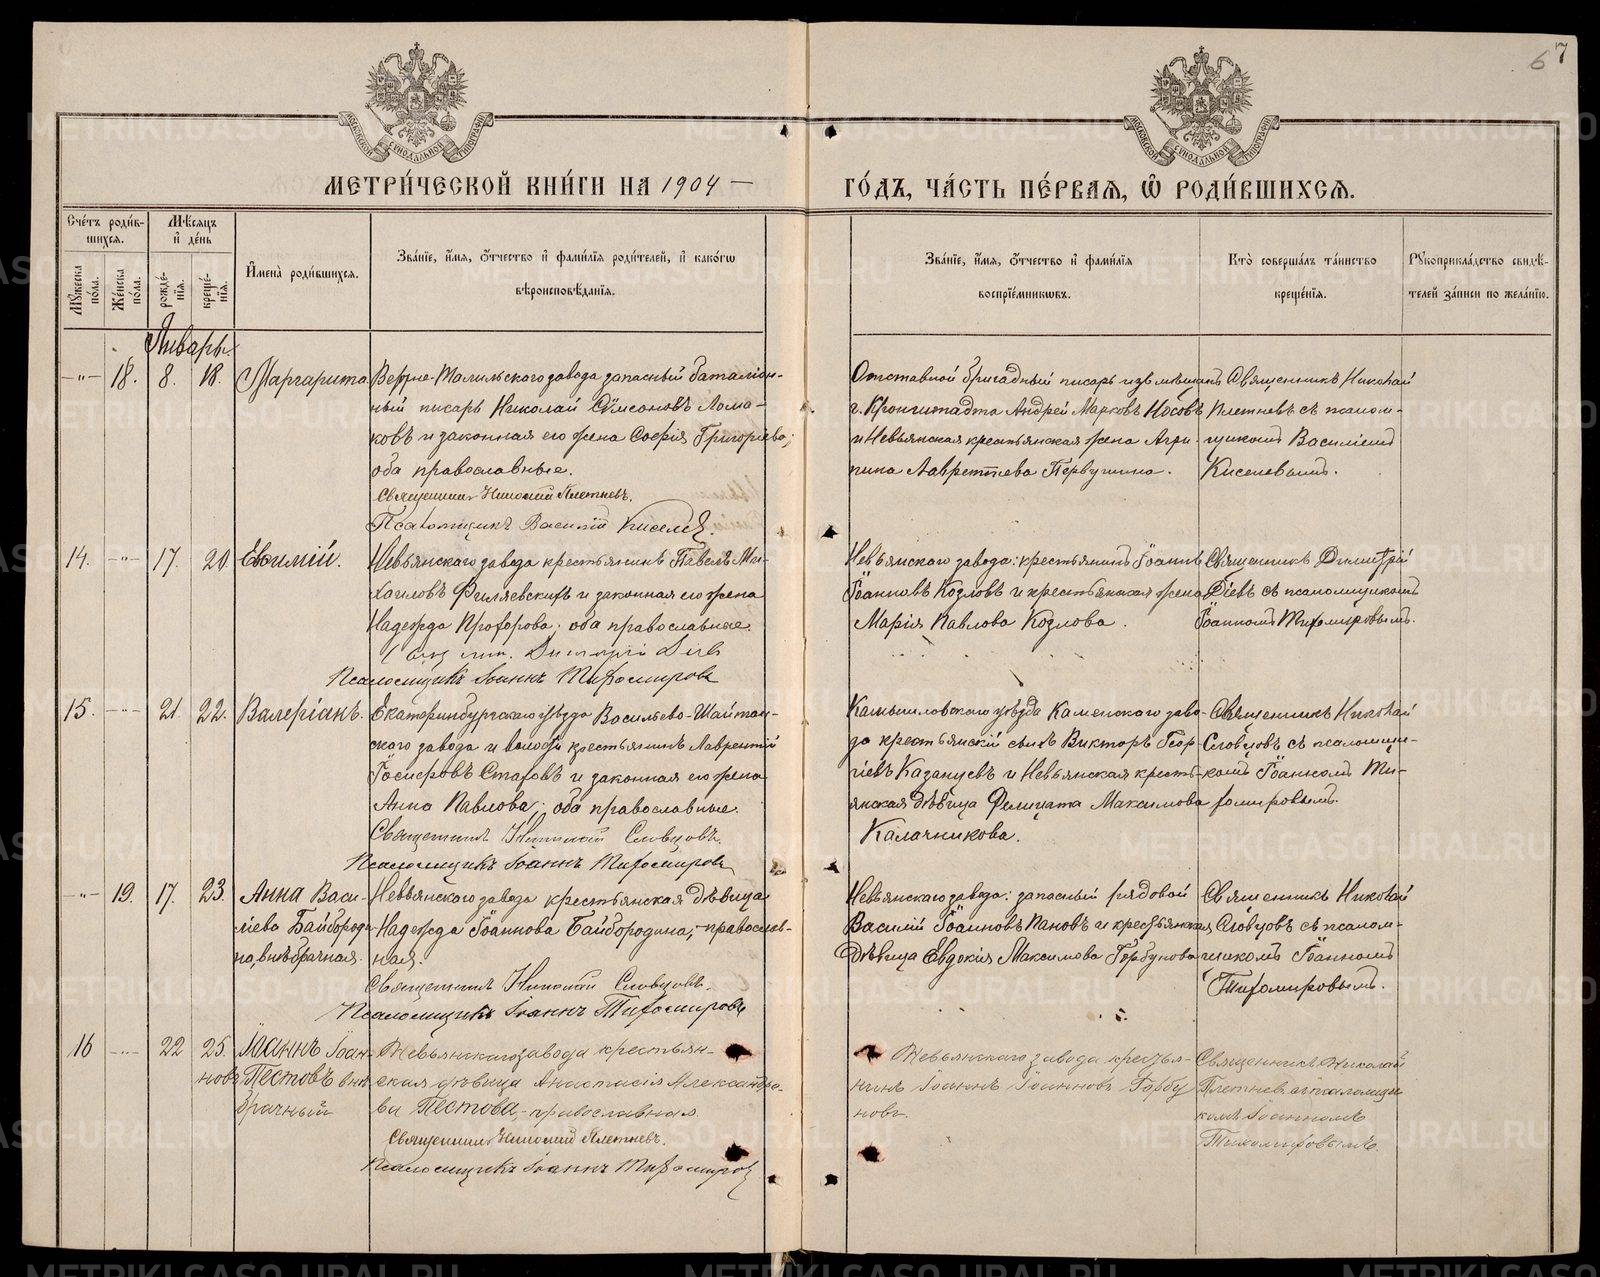 67
МОСКОВСКОЙ СѴНОДАЛЬНОЙ ТИПОГРАФІИ
МОСКОВСКОЙ СѴНОДАЛЬНОЙ ТИПОГРАФІИ
МЕТРИ́ЧЕСКОЙ КНИ́ГИ НА 1904 —
ГО́ДЪ, ЧА́СТЬ ПЕ́РВАѦ, Ѽ РОДИ́ВШИХСѦ.
Сче́тъ роди́в-
шихся.
Мꙋжеска по́ла.
Же́нска по́ла.
Мѣ́сяцъ и де́нь
рожде́-
нія.
креще́-
нія.
И҆мена̀ роди́вшихся.
Зва́ніе, и҆́мя, ѻ҆́тчество и҆ фами́лія роди́телей, и҆ како́гѡ
вѣроисповѣ́данія.
Зва́ніе, и҆́мя, ѻ҆́тчество и҆ фами́лія
воспріе́мникѡвъ.
Кто̀ соверша́лъ та́инство
креще́нія.
Рꙋкоприкла́дство свидѣ́-
телей за́писи по жела́нію.
Январь
-"- 18. 8. 18. Маргарита.
Верхне-Тагильского завода запасный баталіон-
ный писарь Николай Сѵмеоновъ Лома-
ковъ и законная его жена Софія Григоріева;
оба православные.
Священникъ Николай Плетневъ.
Псаломщикъ Василій Киселев
Отставной бригадный писарь изъ мѣщанъ
г. Кронштадта Андрей Марковъ Носовъ
и Невьянская крестьянская жена Агри-
пина Лаврентіева Первушина.
Священникъ Николай
Плетневъ съ псалом-
щикомъ Василіемъ
Киселевымъ.
14. -"- 17. 20. Евѳимій.
Невьянскаго завода крестьянинъ Павелъ Ми-
хаиловъ Филяевскихъ и законная его жена
Надежда Прохорова; оба православные.
Димитрій Діев
Псаломщикъ Іоаннъ Тихомировъ
Невьянскаго завода: крестьянинъ Іоаннъ
Іоанновъ Козловъ и крестьянская жена
Марія Павлова Козлова.
Священникъ Димитрій
Діевъ съ псаломщикомъ
Іоанномъ Тихомировымъ.
15. -"- 21. 22. Валеріанъ.
Екатеринбургскаго уѣзда Васильево-Шайтан-
скаго завода и волости крестьянинъ Лаврентій
Іосифовъ Стаховъ и законная его жена
Анна Павлова; оба православные.
Священникъ Николай Словцовъ.
Псаломщикъ Іоаннъ Тихомировъ
Камышловскаго уѣзда Каменскаго заво-
да крестьянскій сынъ Викторъ Геор-
гіевъ Казанцевъ и Невьянская кресть-
янская дѣвица Фелицата Максимова
Калачникова.
Священникъ Николай
Словцовъ съ псаломщи-
комъ Іоанномъ Ти-
хомировымъ.
-"- 19. 17. 23. Анна Васи-
ліева Байбороди-
на, внѣбрачная.
Невьянскаго завода крестьянская дѣвица
Надежда Іоаннова Байбородина, - православ-
ная.
Священникъ Николай Словцовъ.
Псаломщикъ Іоаннъ Тихомировъ
Невьянскаго завода: запасный рядовой
Василій Іоанновъ Пановъ и крестьянская
дѣвица Евдокія Максимова Горбунова
Священникъ Николай
Словцовъ съ псалом-
щикомъ Іоанномъ
Тихомировымъ.
16 -"- 22 25. Іоаннъ Іоан-
новъ Пестовъ внѣ
брачный
Невьянскаго завода крестьян-
ская дѣвица Анастасія Александро-
ва Пестова, - православная.
Священникъ Николай Плетневъ.
Псаломщикъ Іоаннъ Тихомиров
Невьянскаго завода крестья-
нинъ Іоаннъ Іоанновъ Горбу
новъ.
Священникъ Николай
Плетневъ съ псаломщи
комъ Іоанномъ
Тихомировымъ.
METRIKI.GASO-URAL.RU